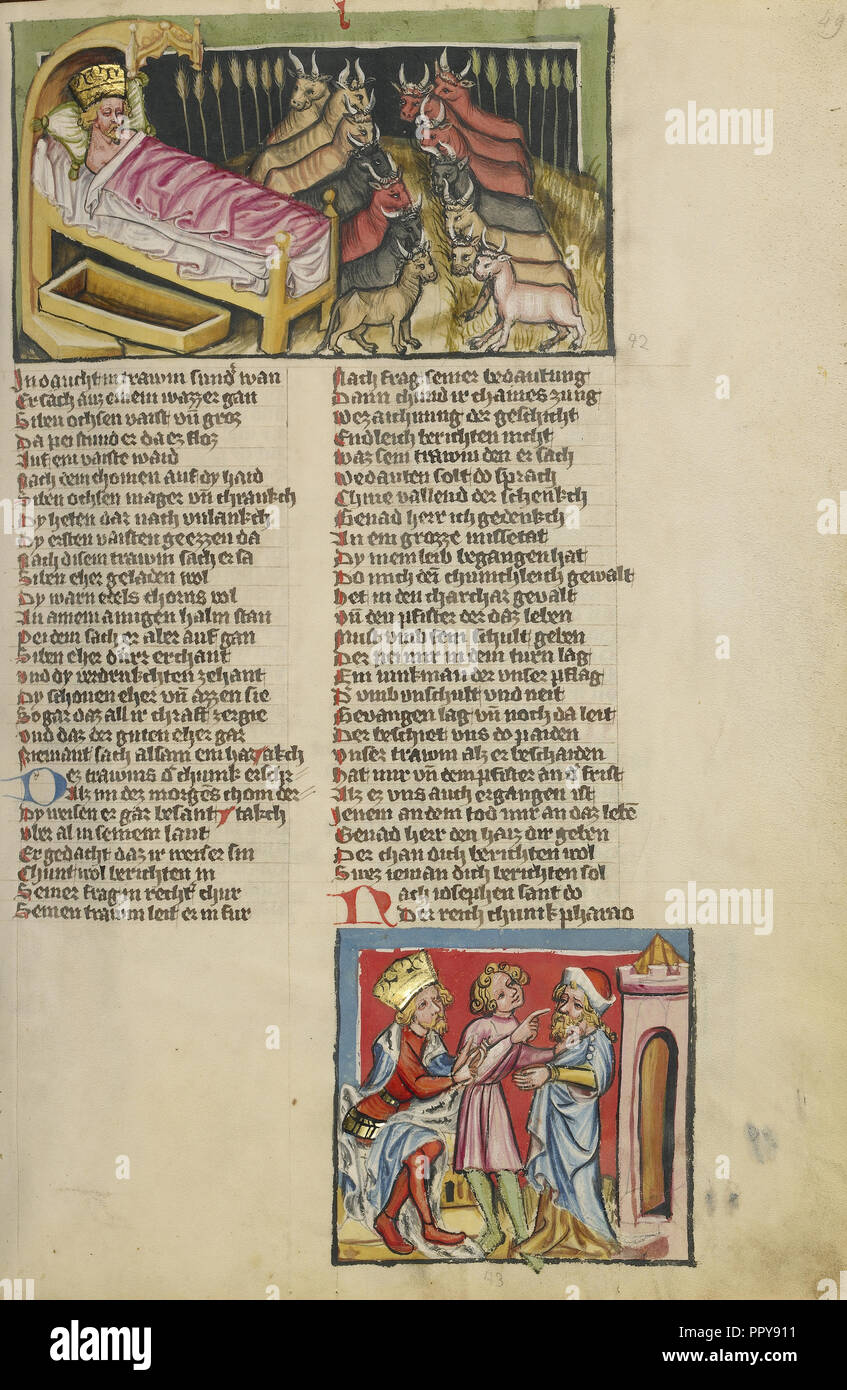 49
92
In daucht in trawm sund' wan
Er sach auz einem wazzer gan
Siben ochsen vaist vn̄ groz
Da pei stund er da ez floz
Auf em vaiste waid
Nach dem chomen auf dy haid
Siben ochsen mager vn̄ chrankch
Dy heten dar nach vnlankch
Dy ersten vaisten geezzen da
Nach disem trawm sach er sa
Siben eher geladen wol
Dy warn edels chorns vol
An ainem ainigen halm stan
Pei dem sach er aber auf gan
Siben eher dürr erchant
vnd dy verdrukchten zehant
Dy schonen eher vn̄ azzen sie
So gar daz all ir chraft zergie
vnd daz der guten eher gar
Niemant sach alsam ein har
Dez trawms d' chunk erschr akch
Alz im der morgēs chom der
Dy weisen er gar besant takch
vber al in seinem lant
Er gedacht daz ir weiser sin
Chunt wol berichten in
Seiner frag in recht' chur
Seinen trawm leit er in fur
Nach frag seiner bedautung
Dann chund ir chaines zung
Wezaichnung der geschicht
Endleich berichten nicht
Waz sein trawm den er sach
Wedauten solt do sprach
Chnie vallend der schenkch
Genad herr ich gedenkch
An ein grozze missetat
Dy mein leib begangen hat
Do mich dein chunichleich gewalt
Het in den charchar gevalt
vn̄ den pfister der daz leben
Muest vmb sein schult geben
Der pei mir in dem turn lag
Ein iunkman der vnser pflag
D' vmb vnschult vnd neit
Gevangen lag vn̄ noch da leit
Der beschiet vns do paiden
vnser trawm alz er bescheiden
hat mir vn̄ dem pfister an d' frist
Alz ez vns auch ergangen ist
Jenem an dem tod mir an daz lebē
Genad herr den haiz dir geben
Der chan dich berichten wol
Swez ieman dich berichten sol
Nach iosephen sant do
Der reich chunik pharao
93
alamy
Image ID: PPY911
www.alamy.com